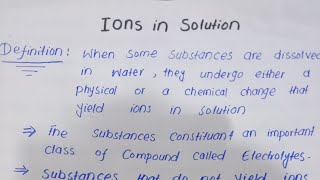 Ions in Solution
Definition: When some substances are dissolved
in water, they undergo either a
physical or a chemical change that
yield ions in solution
⇒ The Substances constituant an important
class of Compound called Electrolytes.
⇒ Substances that do not yield ions